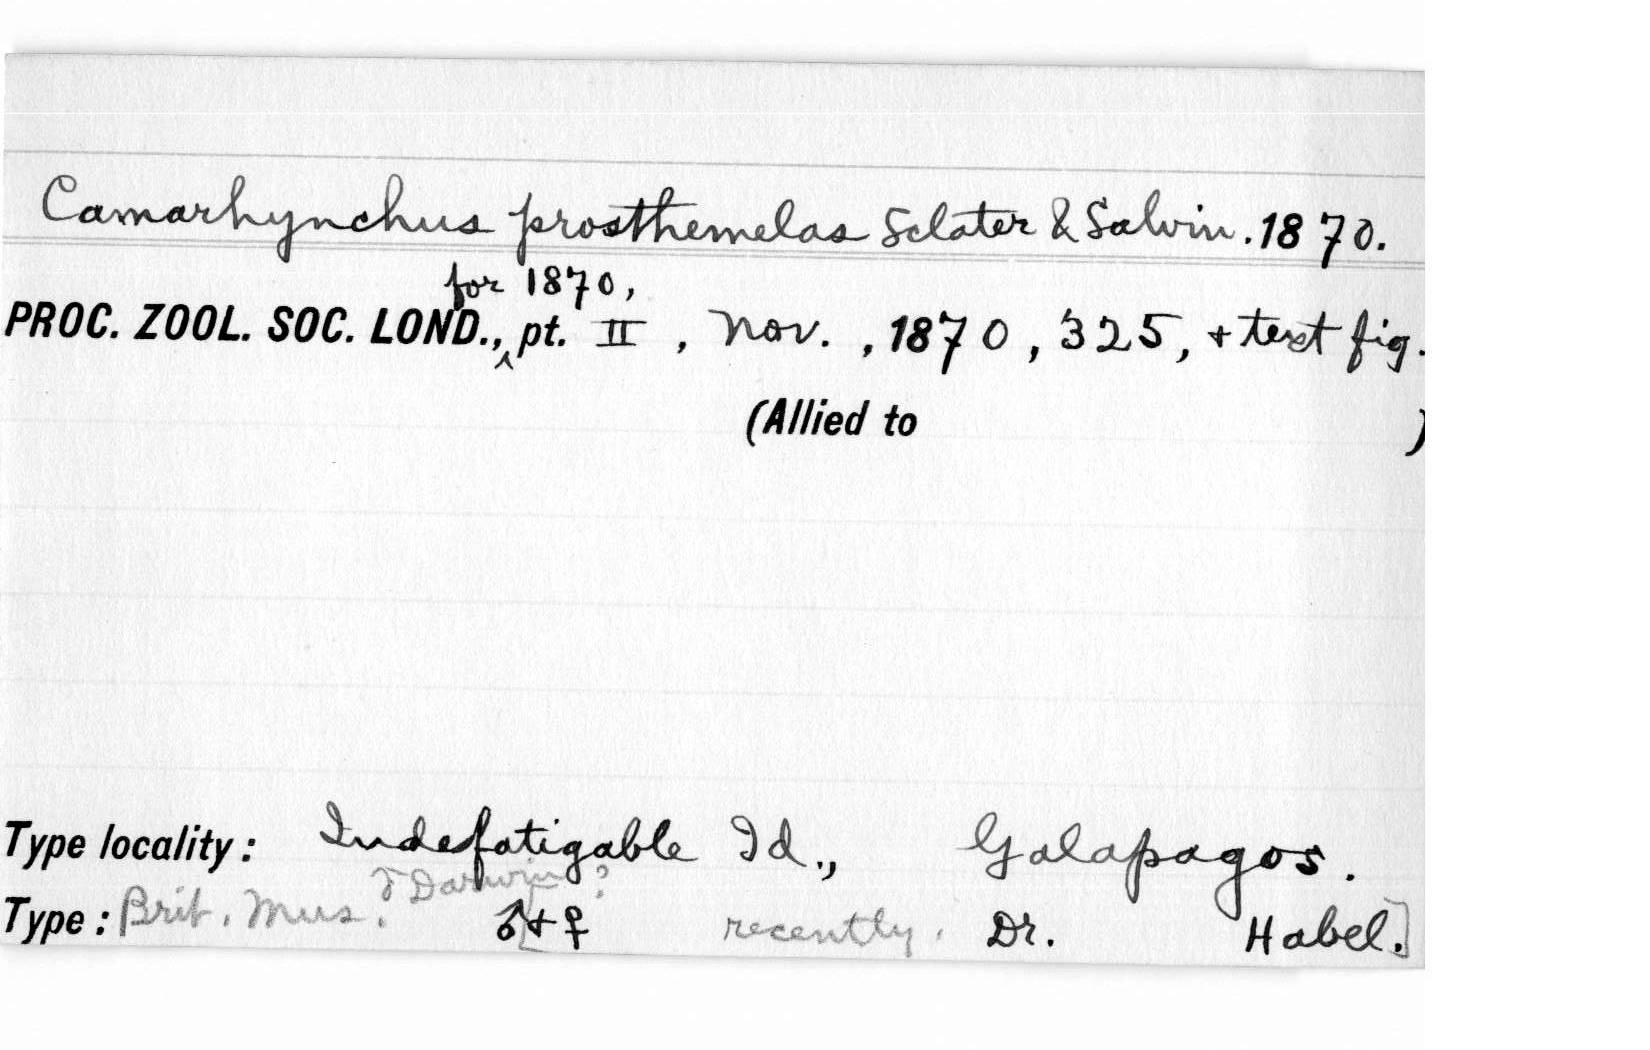 Camarhynchus prosthemelas Sclater & Salvin. 1870.
for 1870,
PROC. ZOOL. SOC. LOND., ^ pt. II, Nov., 1870, 325, + text fig.
(Allied to )
Type locality: Indefatigable Id., Galapagos.
♂ Darwin?
Type: Brit. Mus. ♂ [+ ♀ recently. Dr. Habel.]